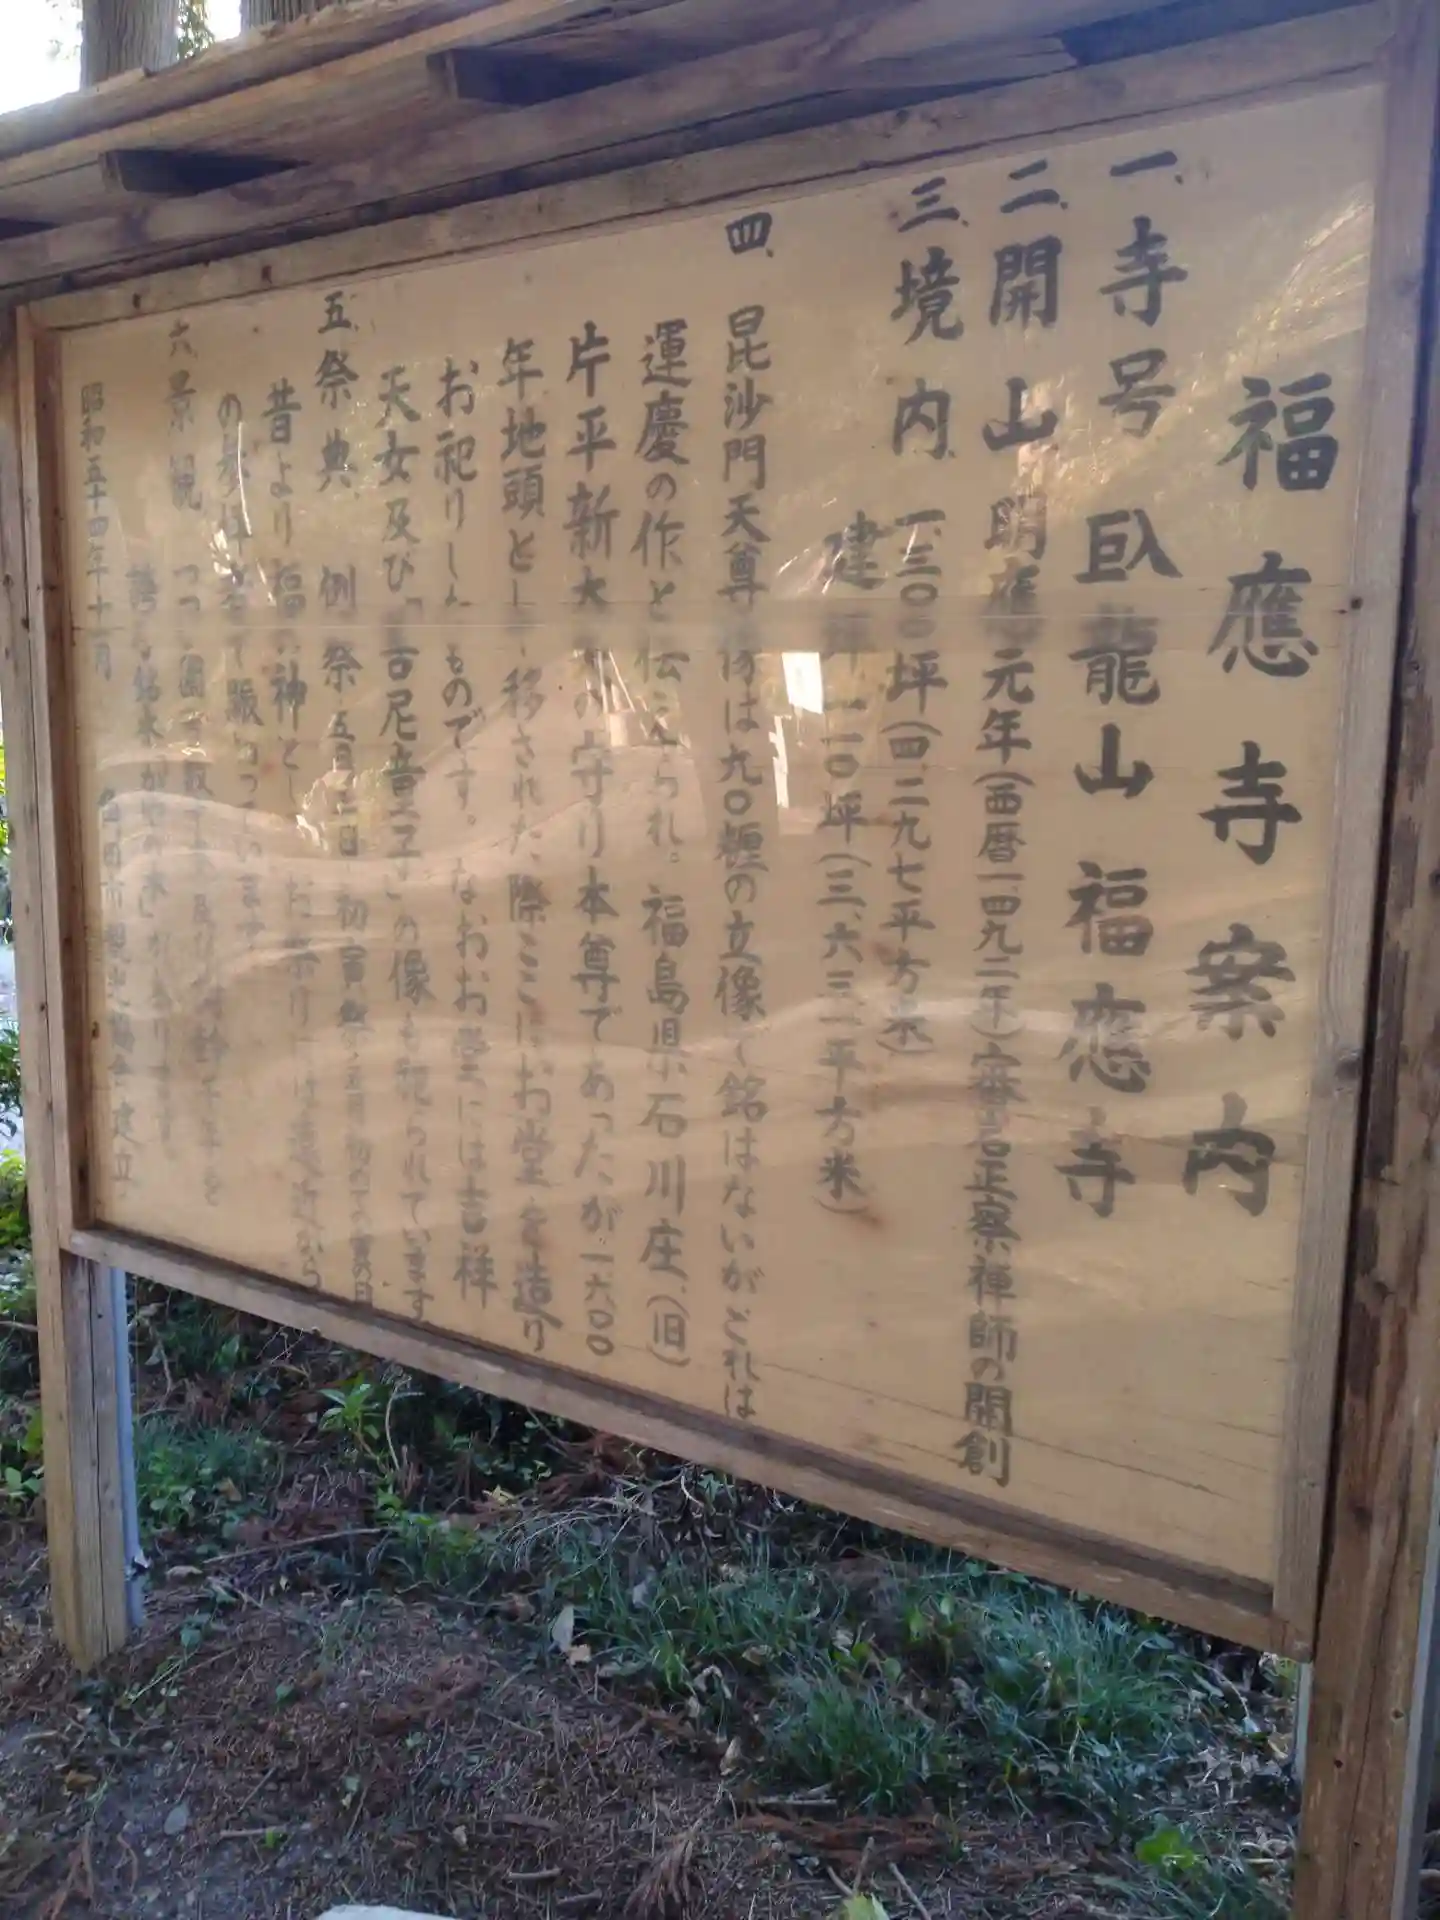 福應寺案内
一、寺号 臥龍山 福應寺
二、開山 明應元年(西暦一、四九二年)審岩正察禅師の開創
三、境内 一、三〇〇坪(四、二九七平方米)
建坪一一〇坪(三、六三一平方米)
四、毘沙門天尊像は九〇糎の立像で銘はないがこれは
運慶の作と伝えられ。福島県石川庄、(旧)
片平新大夫の守り本尊であったが一六〇〇
年地頭として移された際ここにお堂を造り
お祀りしたものです。なおお堂には吉祥
天女及び「善尼童子」の像も祀られています
五、祭典 例祭 五月三日 初寅祭
昔より福の神として お祭りには遠近から
の参拝者で賑わっています
六、景観 つつじ園
昭和五十四年十一月 角田市観光協会建立